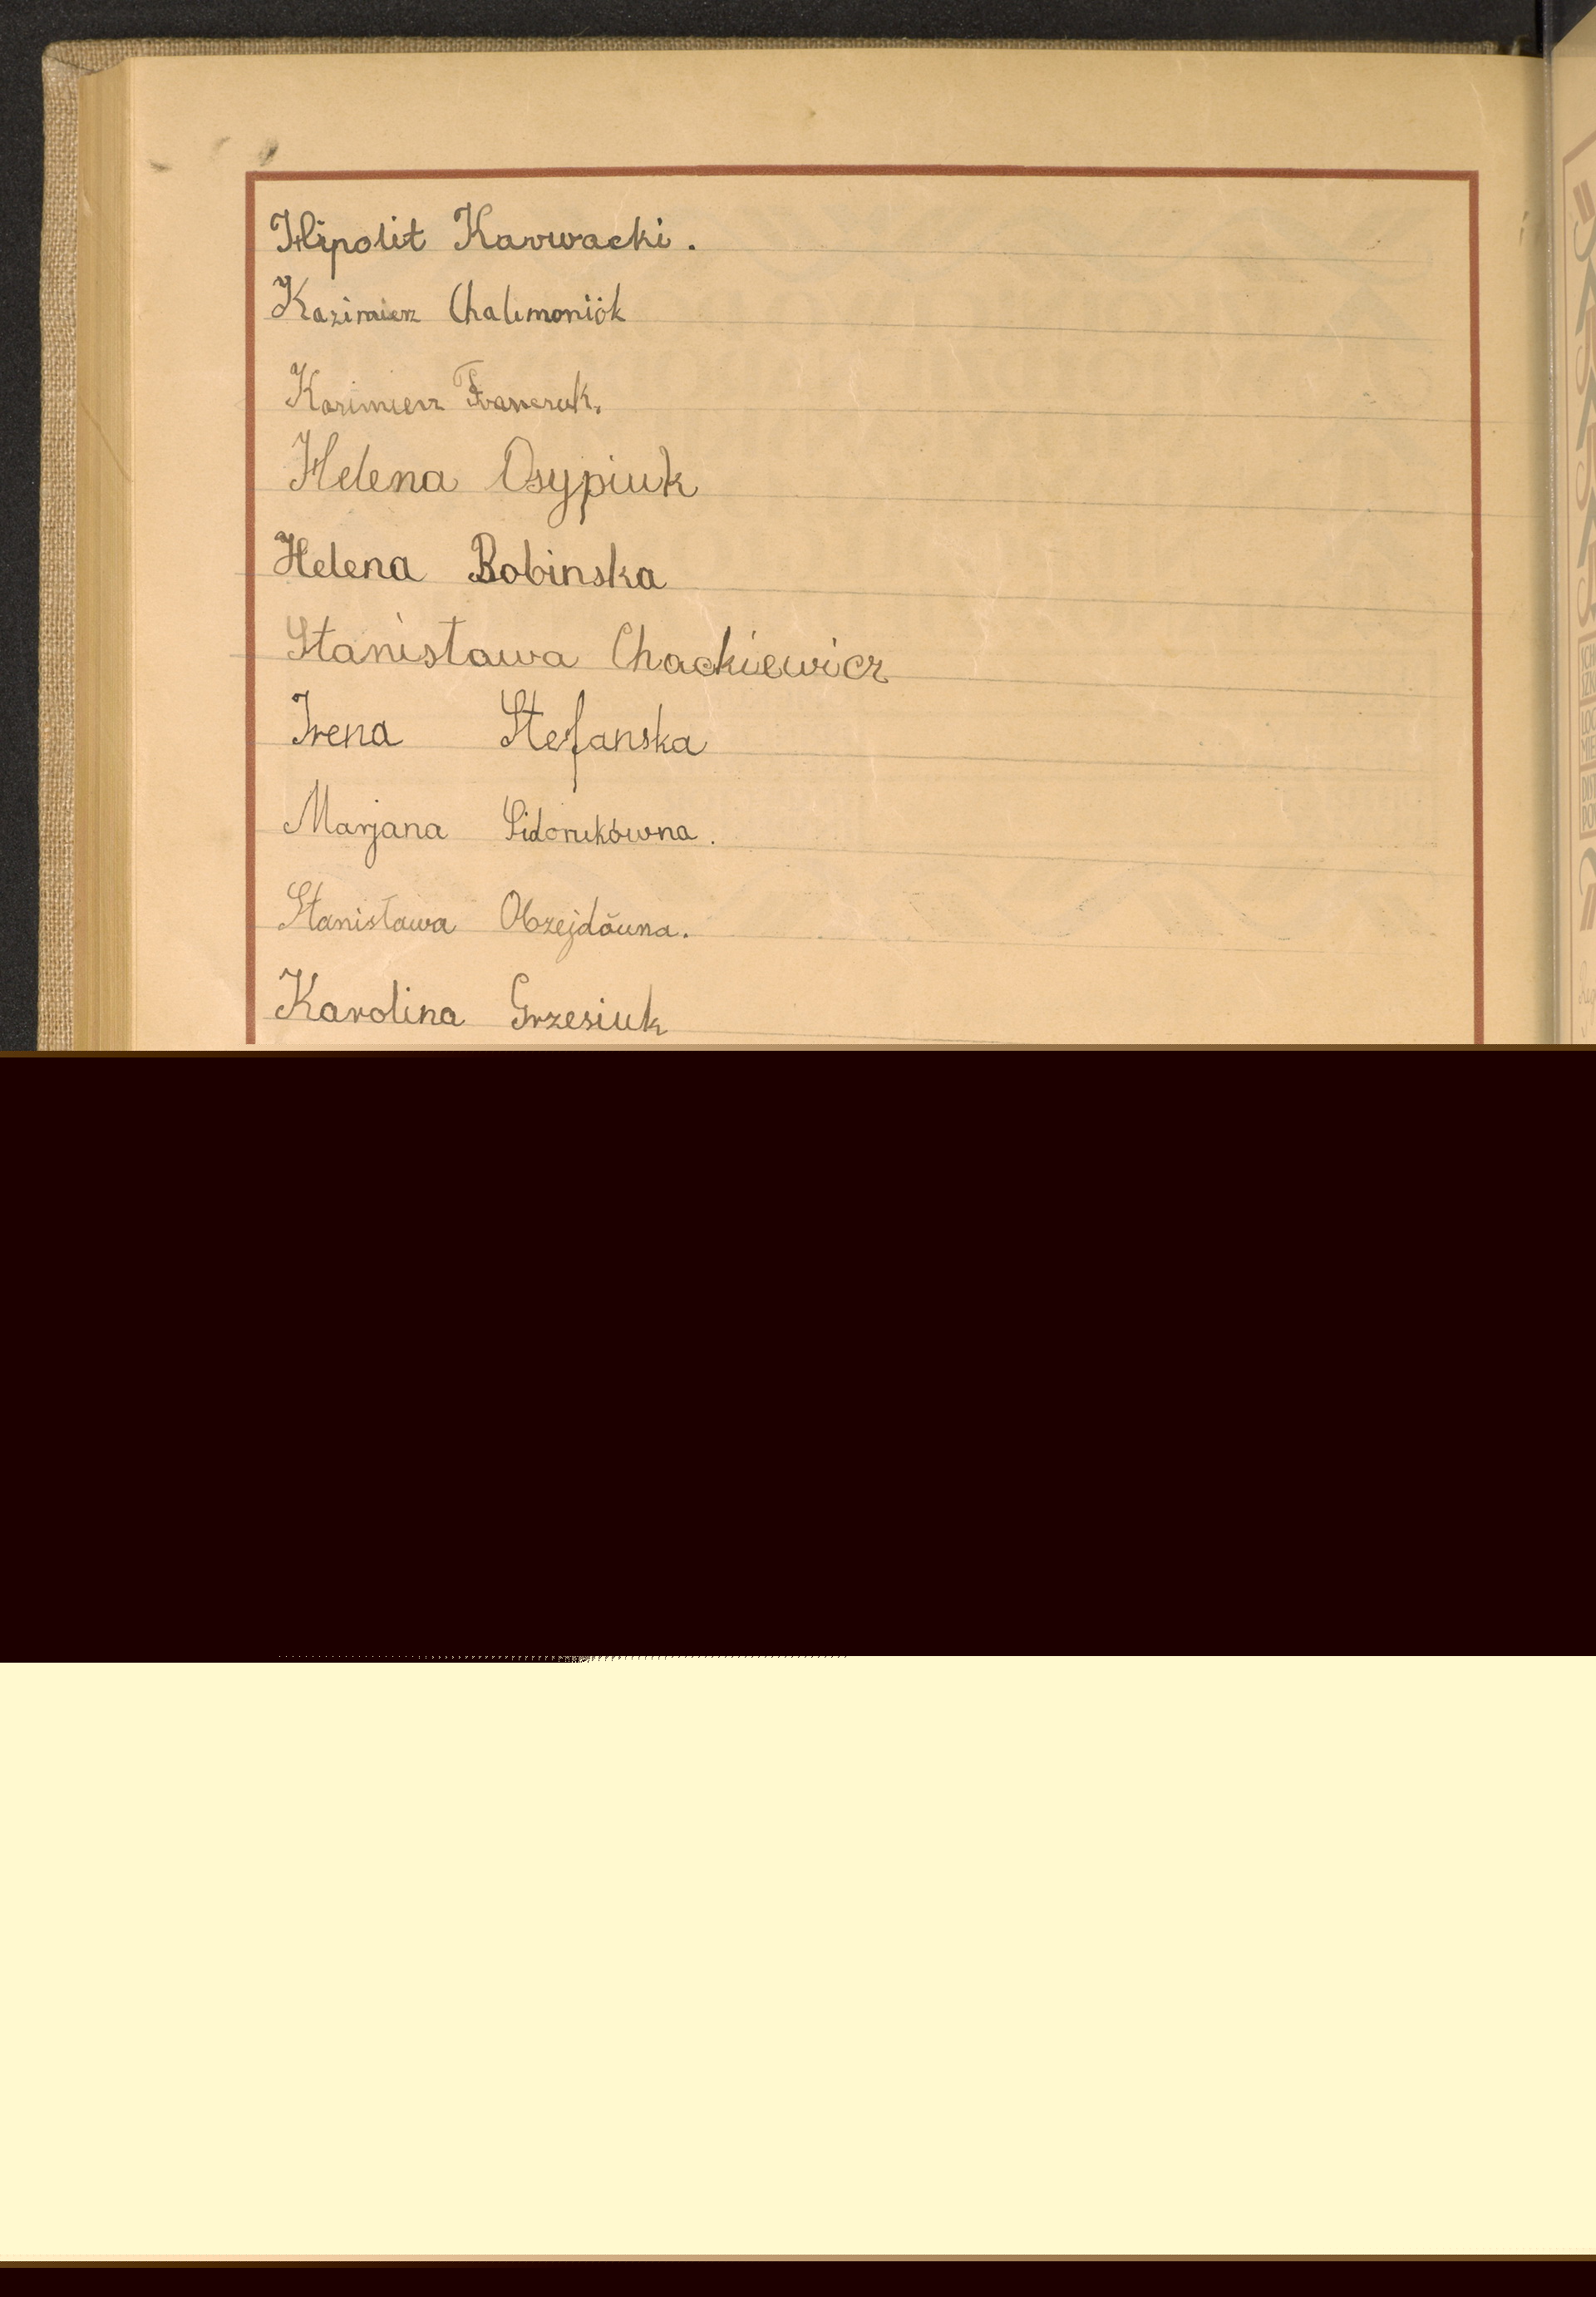 Hipolit Karwacki.
Kazimierz Chalimoniök
Kazimierz
Helena Osypiuk
Helena Bobinska
Stanisława Chackiewicz
Irena Stefanska
Marjana Sidorukówna.
Stanisława Obzejdówna.
Karolina Grzesiuk